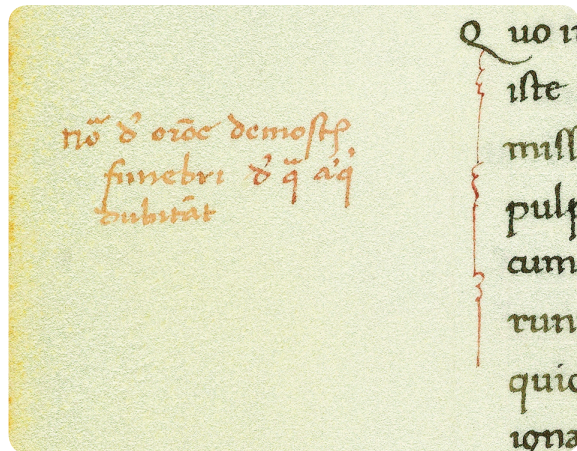 nõ d̉ orõe demosth
funebri d̉ q̃ a'q'
dubitāt
Quo
iste
miss
pulp
cum
run
quic
igna